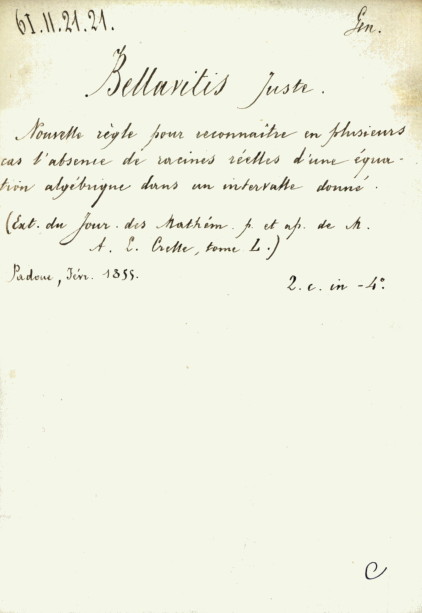 61.11.21.21.
Gen.
Bellavitis Juste.
Nouvelle règle pour reconnaître en plusieurs
cas l'absence de racines réelles d'une équa-
tion algébrique dans un intervalle donné.
(Ext. du Jour. des Mathém. p. et ap. de M.
A. L. Crelle, tome L.)
Padoue, Févr. 1855.
2. c. in -4°.
C